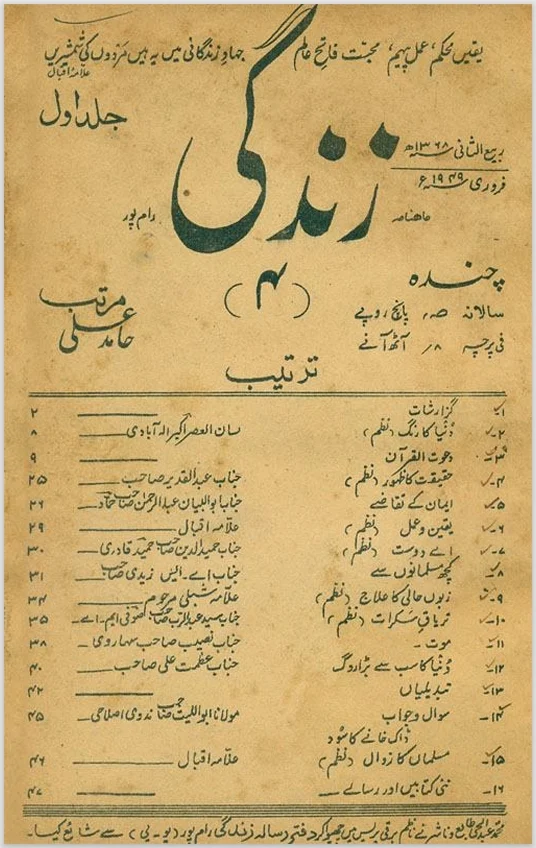 یقیں محکم، عمل پیہم، محبت فاتحِ عالم جہادِ زندگانی میں یہ ہیں مَردوں کی شمشیریں
علامہ اقبال
جلد اول
ربیع الثانی ۱۳۶۸ھ
فروری ۱۹۴۹ء
زندگی
ماہنامہ
رام پور
(۴)
چندہ
سالانہ صہ؍ پانچ روپے
فی پرچہ ۸؍ آٹھ آنے
مرتب
حامد علی
ترتیب
۱- گزارشات ۲
۲- دُنیا کا رنگ (نظم) لسان العصر اکبر الہ آبادی ۸
۳- دعوت القرآن ۹
۴- حقیقت کا ظہور (نظم) جناب عبد القدیر صاحب ۲۵
۵- ایمان کے تقاضے جناب ابوالبیان عبد الرحمن صاحب حماد ۲۶
۶- یقین و عمل (نظم) علامہ اقبال ۲۹
۷- اے دوست (نظم) جناب حمید الدین صاحب حمید قادری ۳۰
۸- کچھ مسلمانوں سے جناب اے۔ ایس زیدی صاحب ۳۱
۹- زبوں حالی کا علاج (نظم) علامہ شبلی مرحوم ۳۴
۱۰- تریاقِ سکرات (نظم) جناب سید عبد الرب صاحب صوفی ایم۔ اے۔ ۳۵
۱۱- موت ۔ جناب نصیب صاحب سہاروی ۳۸
۱۲- دُنیا کا سب سے بڑا روگ جناب عظمت علی صاحب ۴۰
۱۳- تبدیلیاں ۴۲
۱۴- سوال و جواب مولانا ابواللیث صاحب ندوی اصلاحی ۴۵
ڈاک خانے کا سُود
۱۵- مسلماں کا زوال (نظم) علامہ اقبال ۴۶
۱۶- نئی کتابیں اور رسالے ۴۷
محمد عبد الحی طابع و ناشر نے ناظم برقی پریس میں چھپوا کر دفتر رسالہ زندگی رام پور (یو۔پی) سے شائع کیا۔